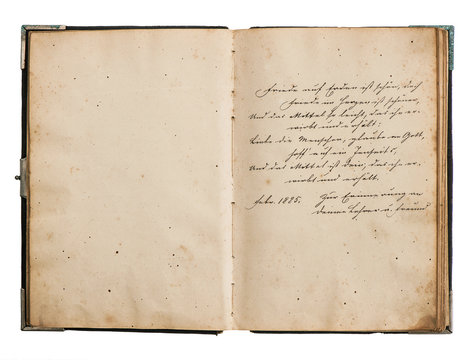 Friede auf Erden ist schön, doch
Friede im Herzen ist schöner,
Und das Mittel so leicht, das ihn er-
wirbt und erhält:
Liebe die Menschen, glaube an Gott,
hoff' auf ein Jenseits,
Und das Mittel ist dein, das ihn er-
wirbt und erhält.
Febr. 1825. Zur Erinnerung an
Deinen Lehrer u. Freund